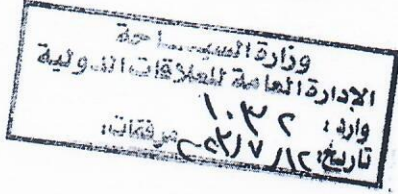 وزارة السيــاحة
الإدارة العامة للعلاقات الدولية
وارد : ١٠٣٢
تاريخ: مرفقات: